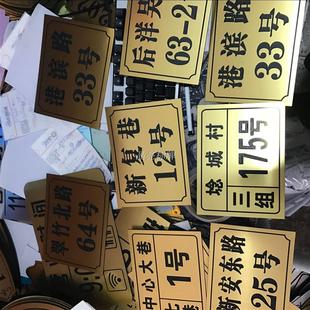 港滨路
33号
后洋吴
63-2
港滨路
33号
新复巷
12号
埝城村
三组
175号
翠竹北路
64号
中心大巷
1号
新安东路
25号